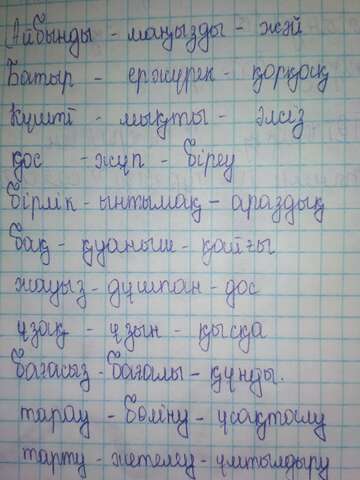 Айбынды - маңызды - жәй
Батыр - ержүрек - қорқақ
Күшті - мықты - әлсіз
дос - жұп - біреу
бірлік - ынтымақ - араздық
бақ - қуаныш - қайғы
жауыз - дұшпан - дос
ұзақ - ұзын - қысқа
бағасыз - бағалы - құнды.
тарау - бөліну - ұсақталу
тарту - жетелеу - ұмтылдыру